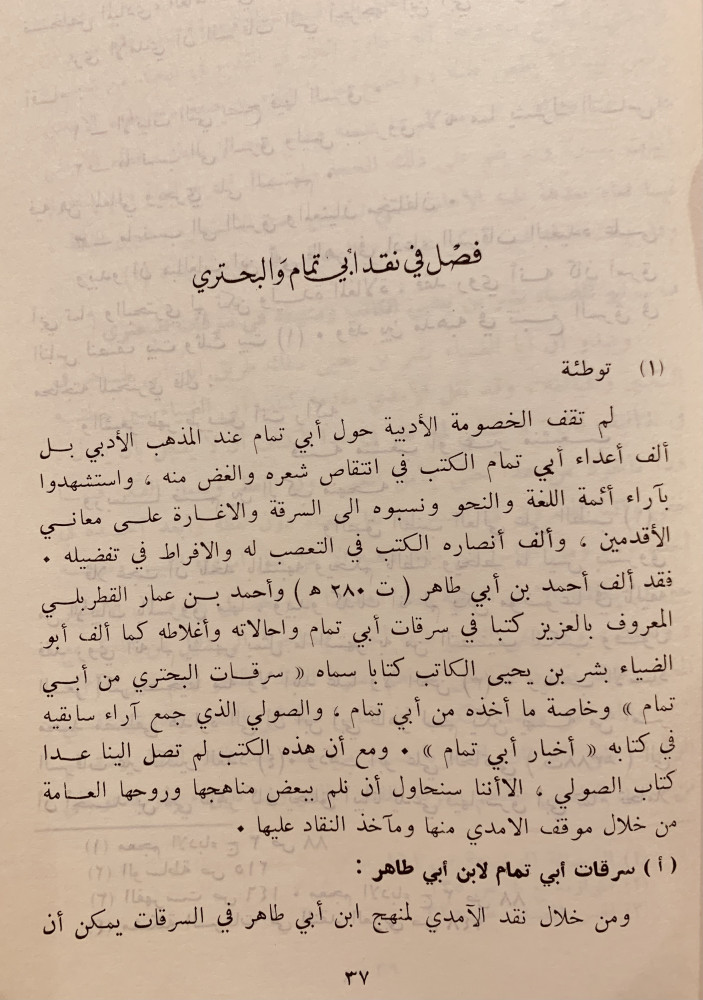 فصل في نقد أبي تمام والبحتري
(١) توطئة
لم تقف الخصومة الأدبية حول أبي تمام عند المذهب الأدبي بل
ألف أعداء أبي تمام الكتب في انتقاص شعره والغض منه ، واستشهدوا
بآراء أئمة اللغة والنحو ونسبوه الى السرقة والاغارة على معاني
الأقدمين ، وألف أنصاره الكتب في التعصب له والافراط في تفضيله .
فقد ألف أحمد بن أبي طاهر ( ت ٢٨٠ ه ) وأحمد بن عمار القطربلي
المعروف بالعزيز كتبا في سرقات أبي تمام واحالاته وأغلاطه كما ألف أبو
الضياء بشر بن يحيى الكاتب كتابا سماه « سرقات البحتري من أبي
تمام » وخاصة ما أخذه من أبي تمام ، والصولي الذي جمع آراء سابقيه
في كتابه « أخبار أبي تمام » . ومع أن هذه الكتب لم تصل الينا عدا
كتاب الصولي ، الاأننا سنحاول أن نلم ببعض مناهجها وروحها العامة
من خلال موقف الامدي منها ومآخذ النقاد عليها .
(أ) سرقات أبي تمام لابن أبي طاهر :
ومن خلال نقد الآمدي لمنهج ابن أبي طاهر في السرقات يمكن أن
٣٧